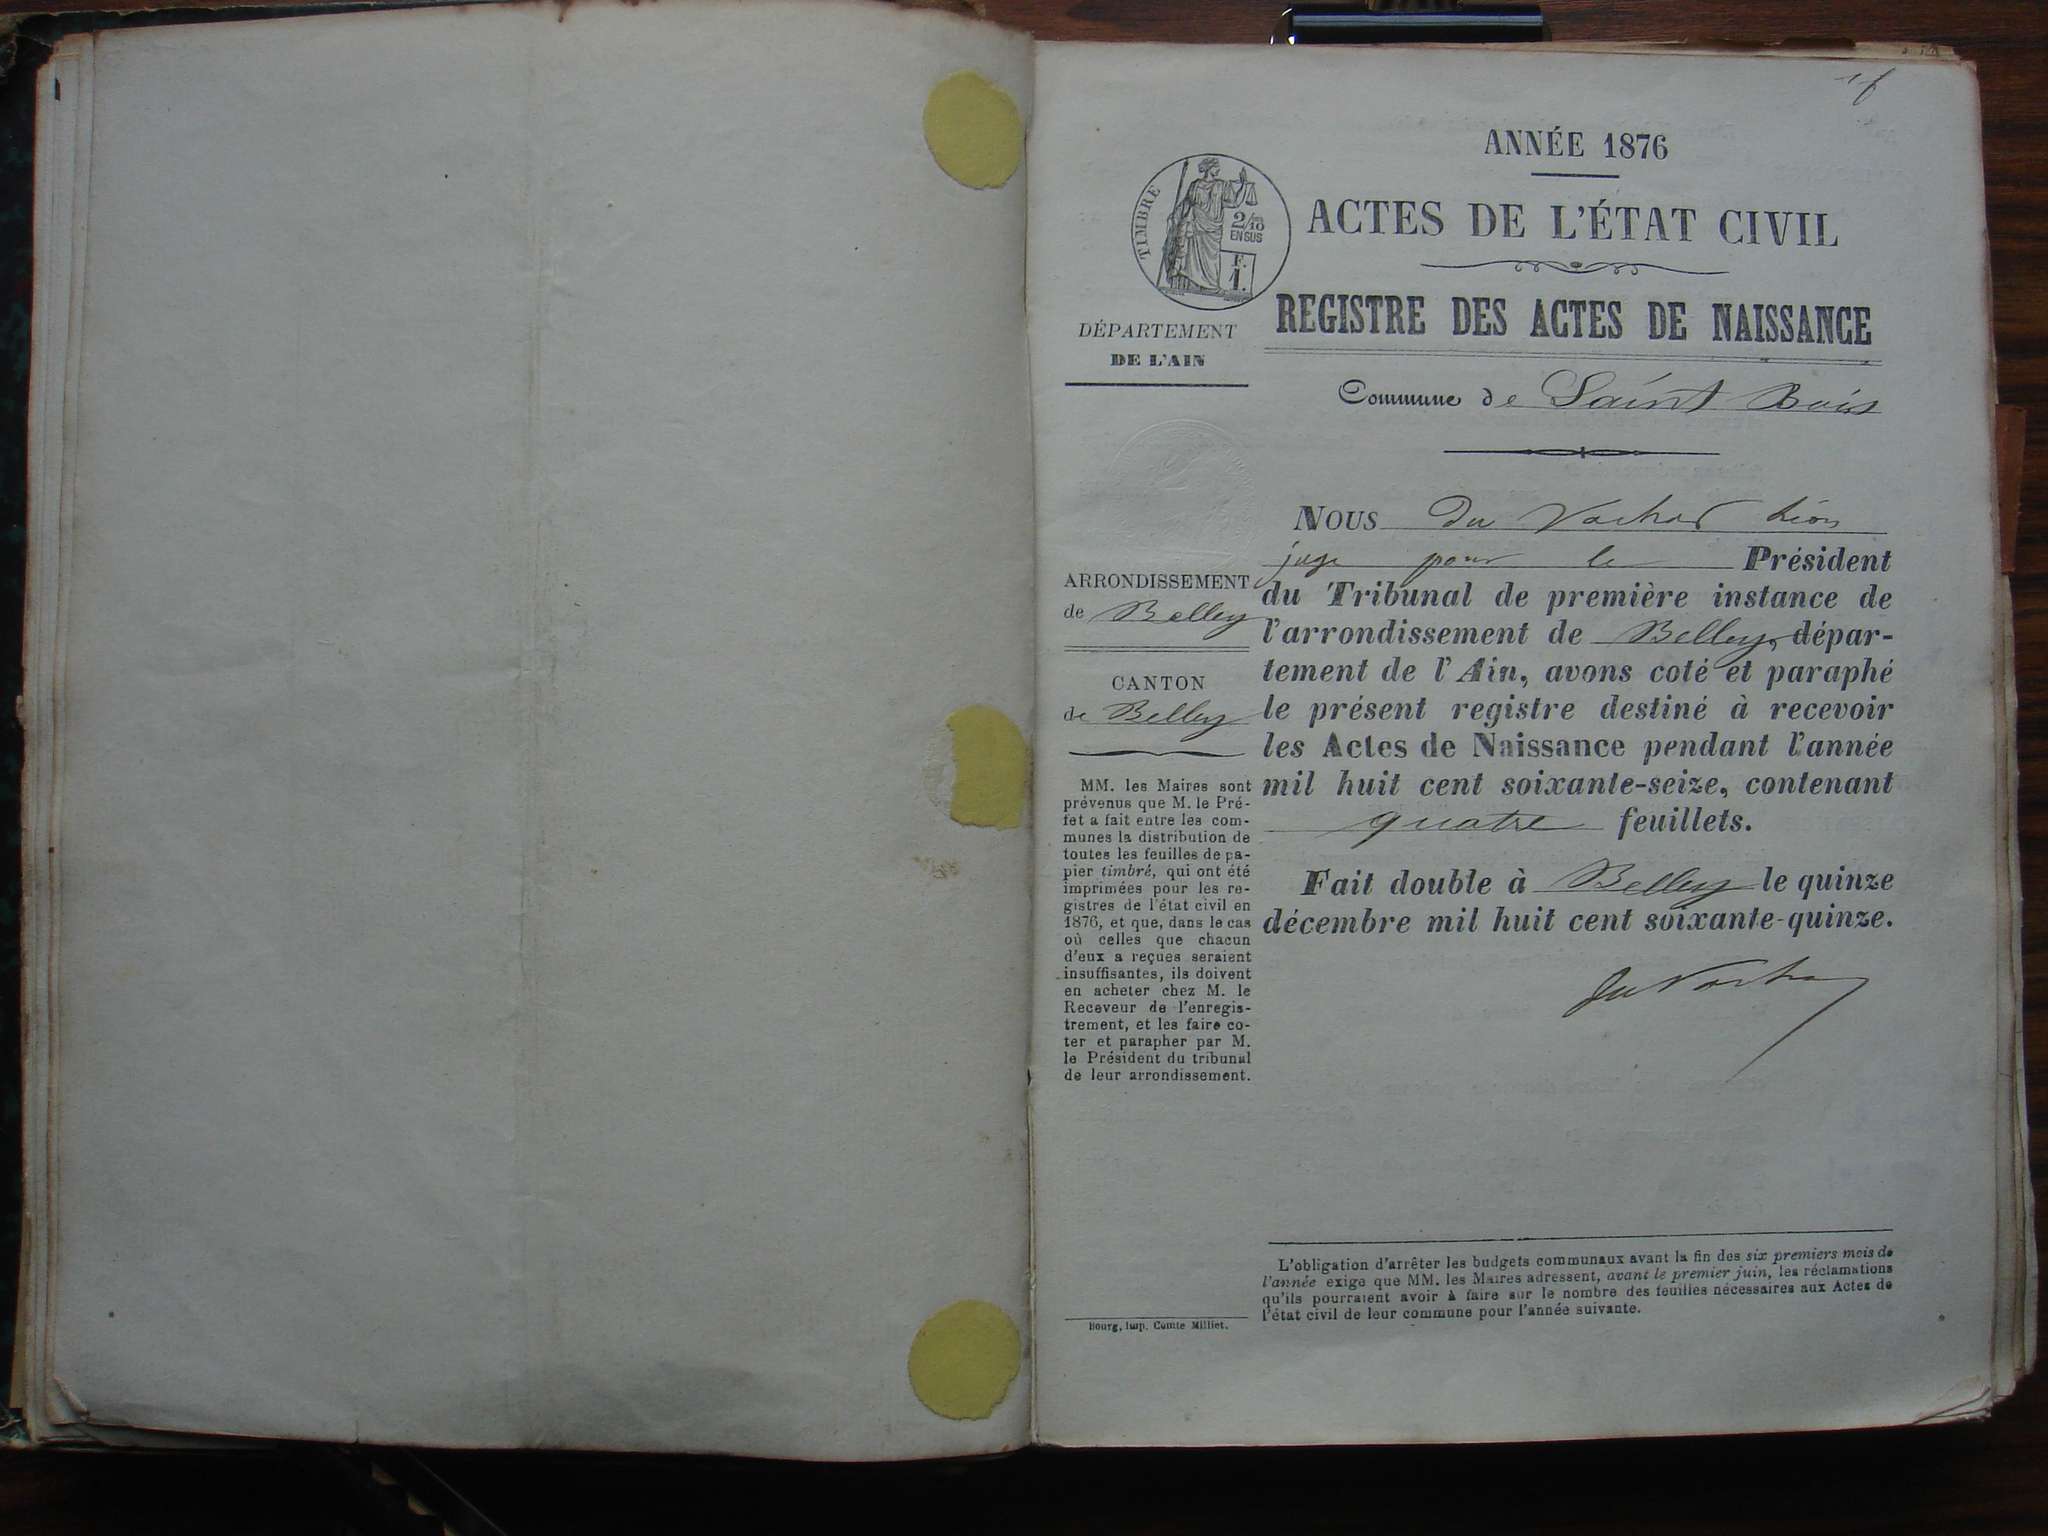 ANNÉE 1876
TIMBRE
2/10
EN SUS
F.
1.
ACTES DE L'ÉTAT CIVIL
REGISTRE DES ACTES DE NAISSANCE
Commune de Saint Bois
DÉPARTEMENT
DE L'AIN
ARRONDISSEMENT
de Belley
CANTON
de Belley
MM. les Maires sont
prévenus que M. le Pré-
fet a fait entre les com-
munes la distribution de
toutes les feuilles de pa-
pier timbré, qui ont été
imprimées pour les re-
gistres de l'état civil en
1876, et que, dans le cas
où celles que chacun
d'eux a reçues seraient
insuffisantes, ils doivent
en acheter chez M. le
Receveur de l'enregis-
trement, et les faire co-
ter et parapher par M.
le Président du tribunal
de leur arrondissement.
Bourg, Imp. Comte Milliet.
NOUS Du Vachat Léon
juge pour le Président
du Tribunal de première instance de
l'arrondissement de Belley, dépar-
tement de l'Ain, avons coté et paraphé
le présent registre destiné à recevoir
les Actes de Naissance pendant l'année
mil huit cent soixante-seize, contenant
quatre feuillets.
Fait double à Belley le quinze
décembre mil huit cent soixante-quinze.
Du Vachat
L'obligation d'arrêter les budgets communaux avant la fin des six premiers mois de
l'année exige que MM. les Maires adressent, avant le premier juin, les réclamations
qu'ils pourraient avoir à faire sur le nombre des feuilles nécessaires aux Actes de
l'état civil de leur commune pour l'année suivante.